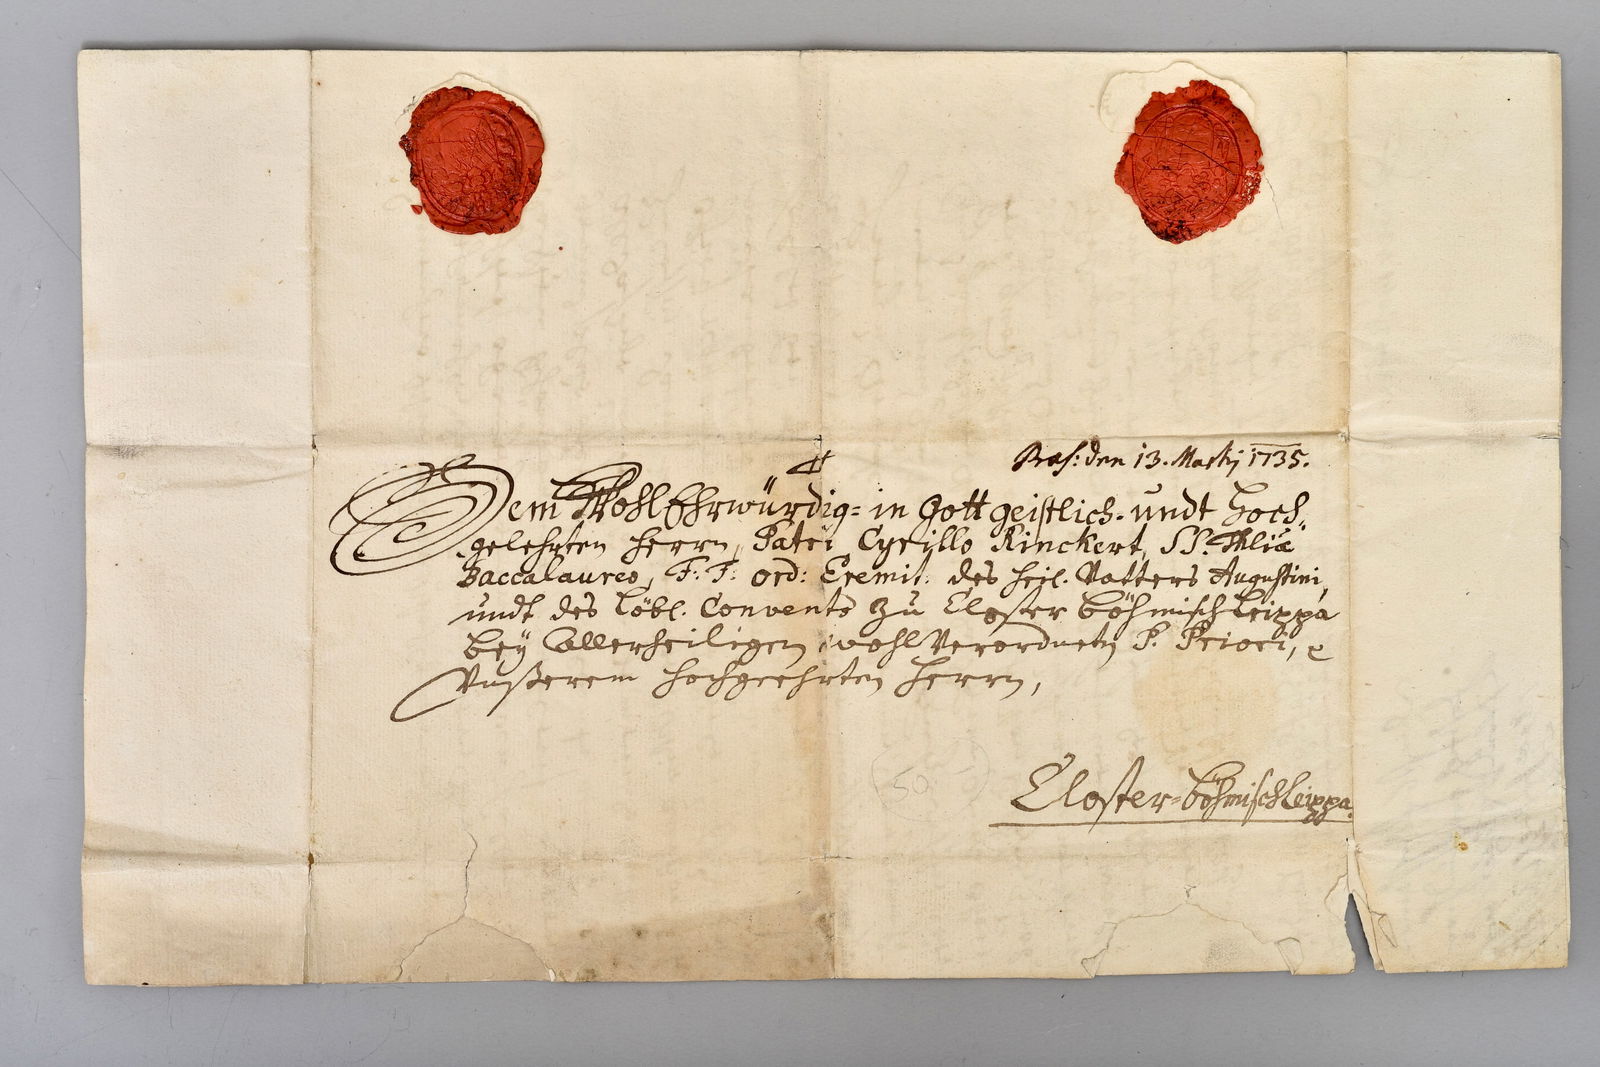 Præs: den 13. Martij 1735.
Dem Wohl Ehrwürdig- in Gott geistlich- undt Hoch-
gelehrten Herrn, Patri Cyrillo Rinckert, SS. Thliæ
Baccalaureo, F: F: Ord: Eremit: des heil. Vatters Augustini,
undt des Löbl. Convents zu Closter Böhmisch Leippa
bey Allerheiligen wohl Verordnetn P. Priori,
Unßerem Hochgeehrten Herrn,
Closter-Böhmisch Leippa.
50